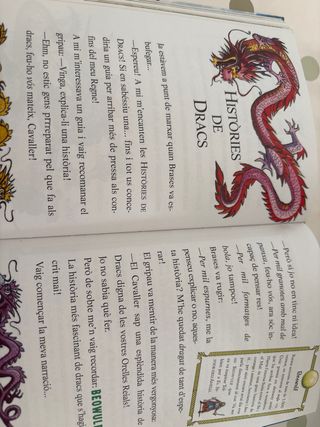 HISTÒRIES
DE
DRACS
Ja estàvem a punt de marxar quan Brases va es-
bufegar...
—Espereu! A mi m'encanten les HISTÒRIES DE
DRACS! Si en sabéssiu una... fins i tot us conce-
diria un guia per arribar més de pressa als con-
fins del meu Regne!
A mi m'interessava un guia i vaig recomanar el
gripau: —Vinga, explica-li una història!
—Ehm, no estic gens prreparat pel que fa als
dracs, feu-ho vós mateix, Cavaller!
—Però si jo no en tinc ni idea!
—Per mil granotes amb mal de
panxa, feu-ho vós, ara sóc in-
capaç de pensar res!
—Per mil formatges de
bola, jo tampoc!
Brases va rugir:
—Per mil espurnes, me la
penseu explicar o no, aques-
ta història? M'he quedat dragat de tant d'espe-
rar!
El gripau va mentir de la manera més vergonyosa:
—El Cavaller sap una esplèndida història de
Dracs digna de les vostres Orelles Reials!
Jo no sabia què fer.
Però de sobte me'n vaig recordar: BEOWULF
La història més fascinant de dracs que s'hagi
escrit mai!
Vaig començar la meva narració...
Beowulf